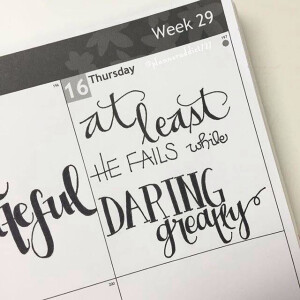 Week 29
Thursday
16
at least
HE FAILS while
DARING
greatly
teful